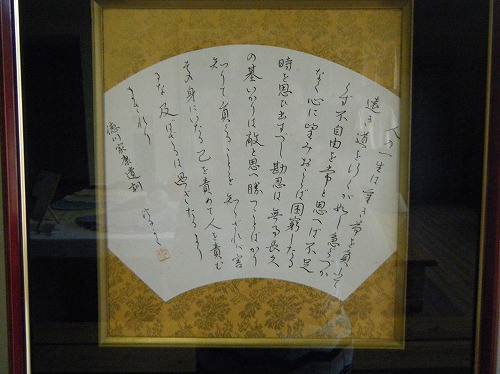 人の一生は重き荷を負ふて
遠き道を行くが如し急ぐべか
らず不自由を常と思へば不足
なく心に望みおこらば困窮したる
時を思ひ出すべし勘忍は無事長久
の基いかりは敵と思へ勝つことばかり
知りて負くることを知らざれば害
その身にいたる己を責めて人を責む
るな及ばざるは過ぎたるより
まされり
徳川家康遺訓